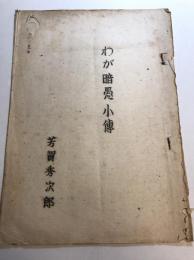 わが暗愚小傳
芳賀秀次郎